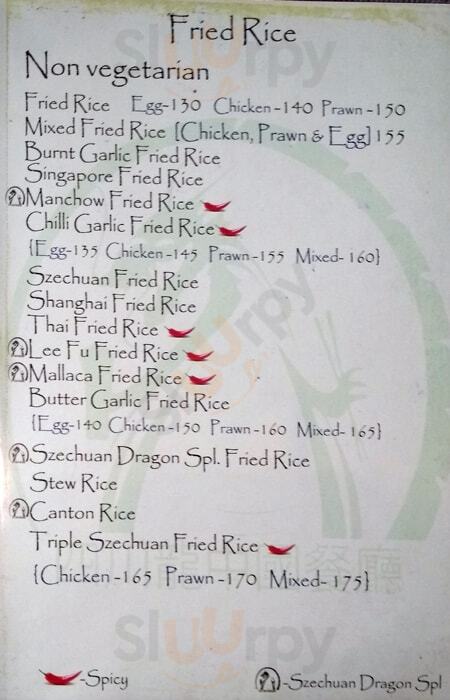 Fried Rice
Non vegetarian
Fried Rice Egg-130 Chicken-140 Prawn-150
Mixed Fried Rice [Chicken, Prawn & Egg] 155
Burnt Garlic Fried Rice
Singapore Fried Rice
Manchow Fried Rice
Chilli Garlic Fried Rice
{Egg-135 Chicken-145 Prawn-155 Mixed-160}
Szechuan Fried Rice
Shanghai Fried Rice
Thai Fried Rice
Lee Fu Fried Rice
Mallaca Fried Rice
Butter Garlic Fried Rice
{Egg-140 Chicken-150 Prawn-160 Mixed-165}
Szechuan Dragon Spl. Fried Rice
Stew Rice
Canton Rice
Triple Szechuan Fried Rice
{Chicken-165 Prawn-170 Mixed-175}
-Spicy
-Szechuan Dragon Spl
Sluurpy
Sluurpy
Sluurpy